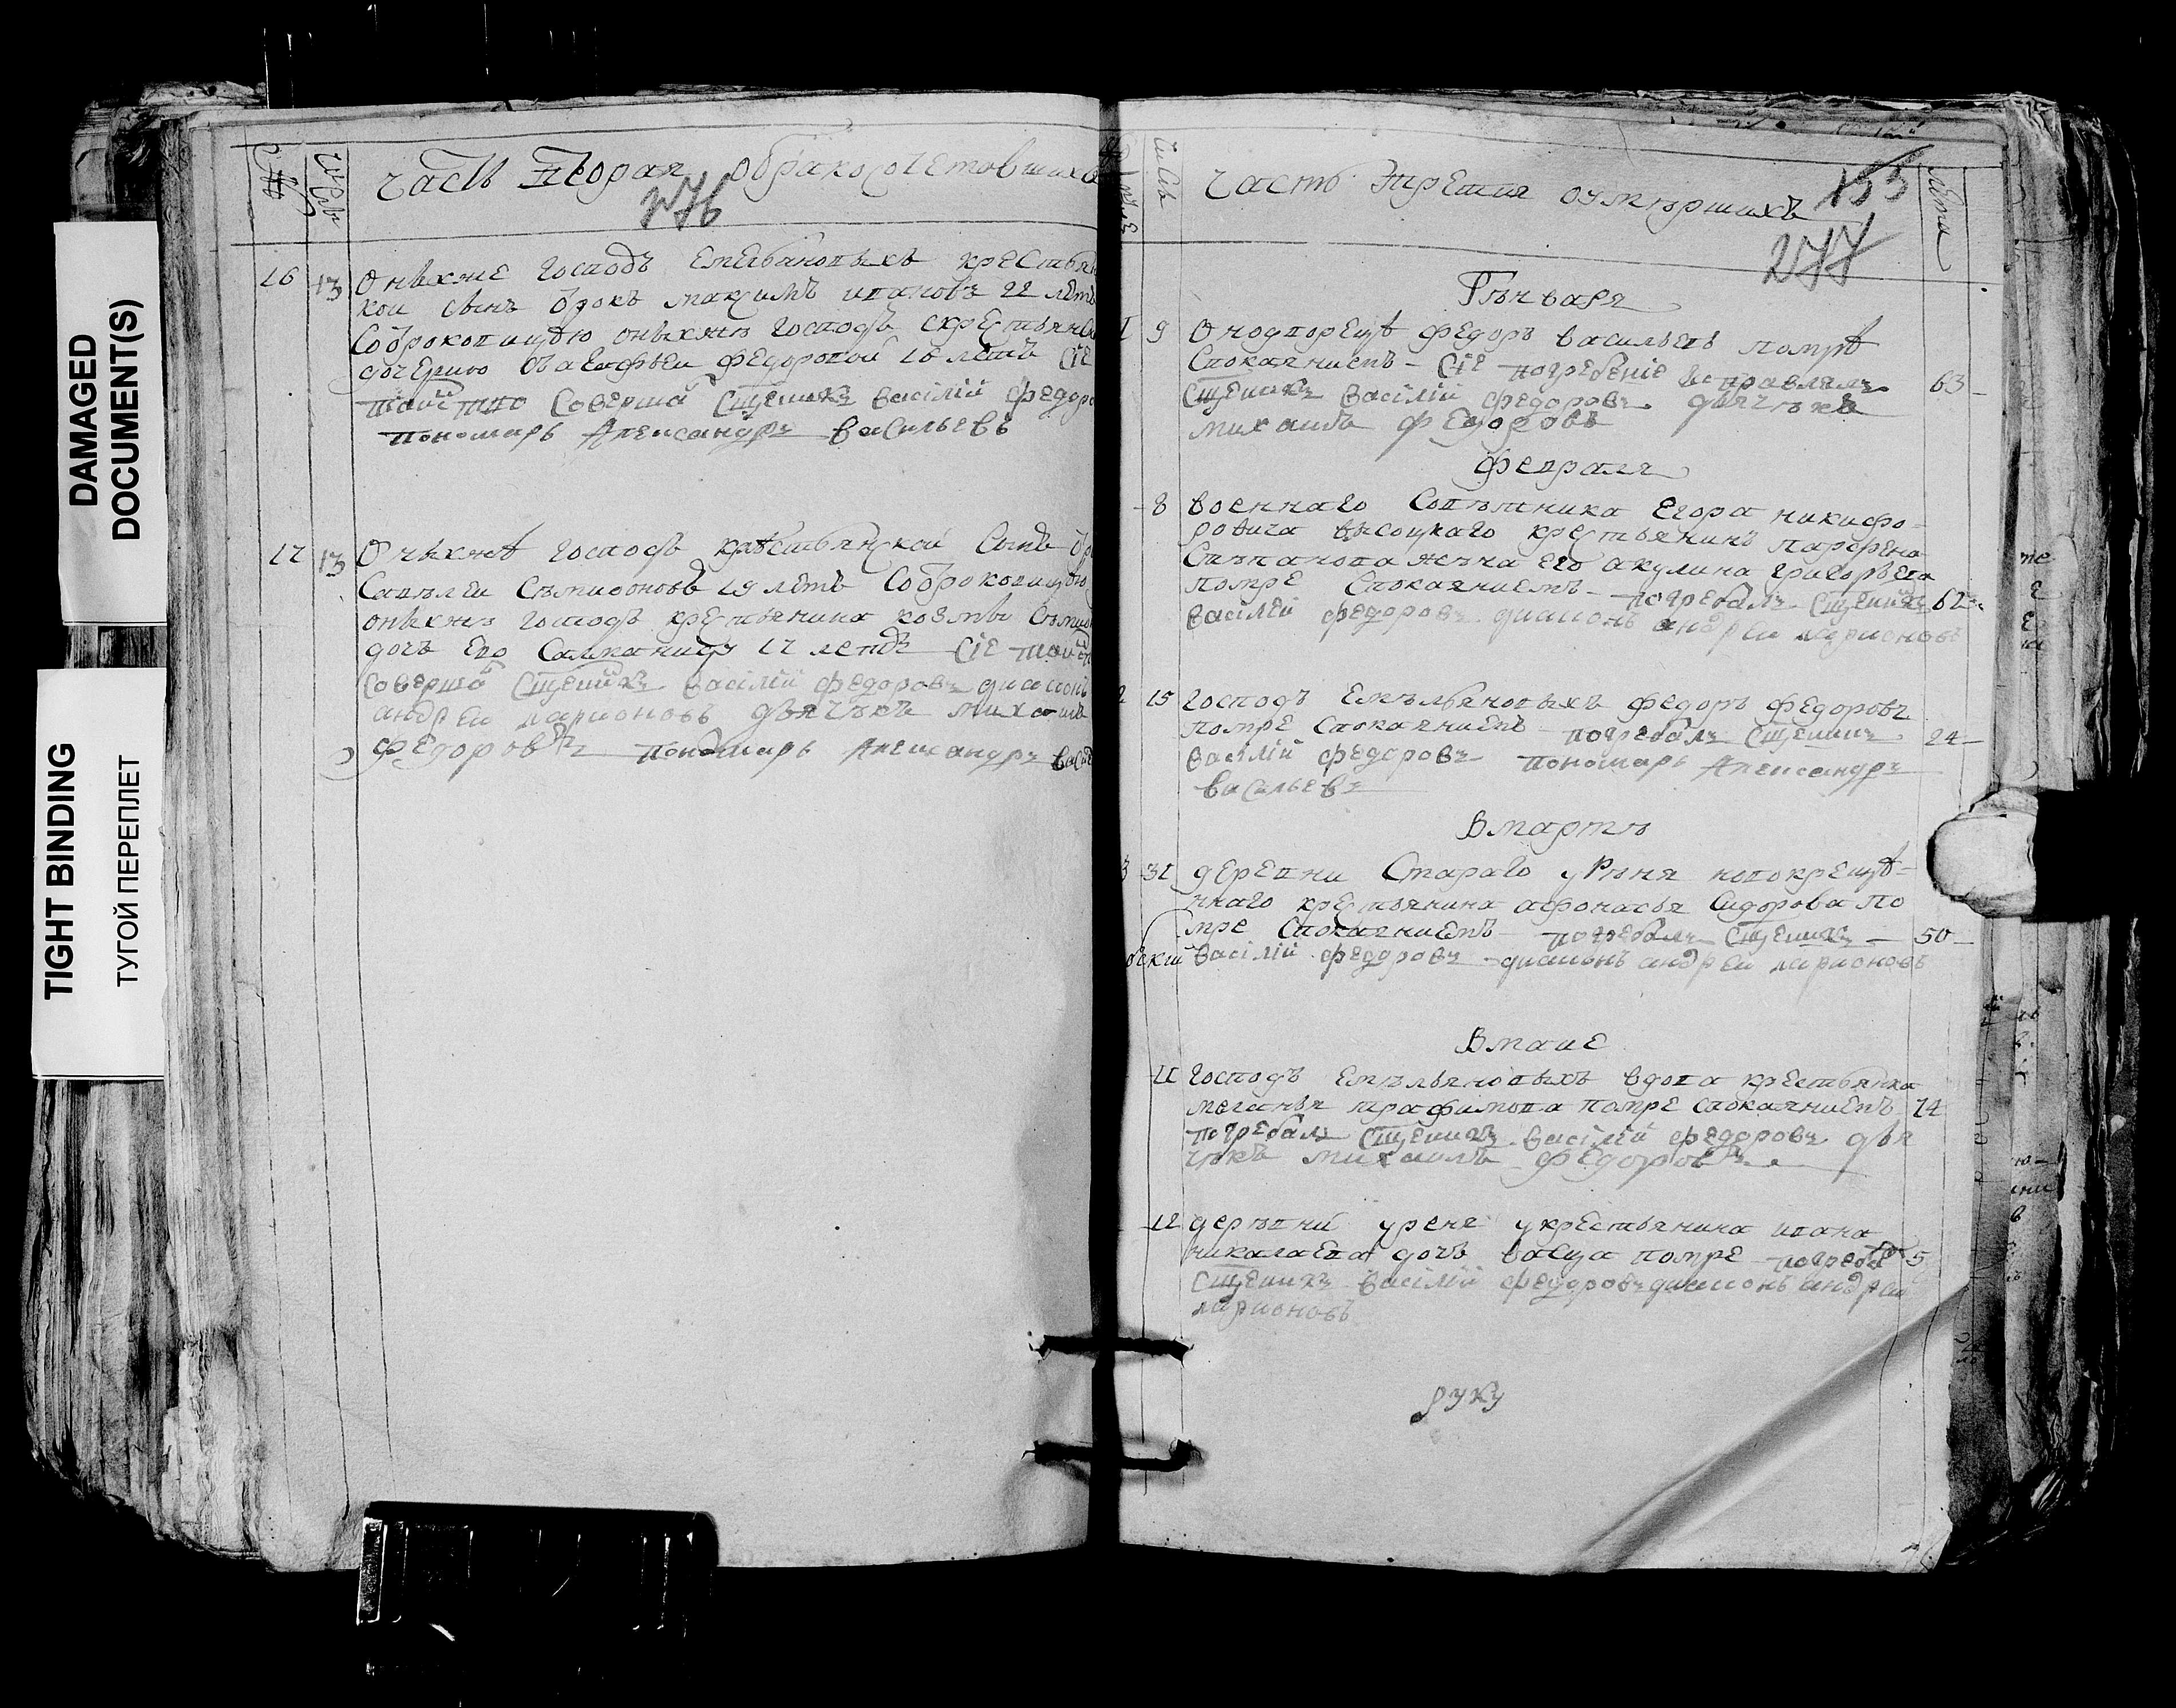 DAMAGED
DOCUMENT(S)
TIGHT BINDING
ТУГОЙ ПЕРЕПЛЕТ
часть вторая обракосочетовшихся
276
16 13 Оныхже Господъ крестьян
кои сынъ отрокъ максимъ ивановъ 22 летъ
Соотроковицею оныхже Господъ скрестьянско
дочерию Федоровой 16 летъ Сіе
таинство Соверша Сщенникъ Василій Федоро
пономарь Александръ Васильевъ
17 13 Оныхже Господъ крестьянской Сынъ
Савелеи Семионовъ 19 летъ Соотроковицею
оныхже Господъ крестьянина козмы
дочь Его 17 летъ Сіе
Соверша Сщенникъ Василій Федоровъ диаконъ
андреи ларионовъ дьячекъ михаилъ
Федоровъ пономарь Александръ
часть третия оумершихъ
153
277
лета
Генваря
9 Оноднорецъ Федоръ васильевъ помре
Спокаяниемъ Сіе погребеніе исправлялъ
Сщенникъ Василій Федоровъ дьячекъ 63
михаилъ Федоровъ
Февраля
8 военнаго Советника Егора никифо-
ровича высоцкаго крестьянинъ парфена
Степанова жена его акулина григорьева
помре Спокаяниемъ погребалъ Сщенникъ 62
Василій Федоровъ диаконъ андреи ларионовъ
15 Господъ Емельяновыхъ Федоръ Федоровъ
помре Спокаяниемъ погребалъ Сщенникъ 24
Василій Федоровъ пономарь Александръ
Васильевъ
Вмарте
3 31 деревни Стараго уреня новокреще-
ннаго крестьянина афонасья Сидорова по
мре Спокаяниемъ погребалъ Сщенникъ 50
Василій Федоровъ диаконъ андреи ларионовъ
Вмаие
11 Господъ Емельяновыхъ вдова крестьянка
меланья трафимова помре Спокаяниемъ 74
погребалъ Сщенникъ Василій Федоровъ дья
чекъ михаилъ Федоровъ
12 деревни уреня укрестьянина ивана
николаева дочь помре погреба 5
Сщенникъ Василій Федоровъ диаконъ андреи
ларионовъ
руку